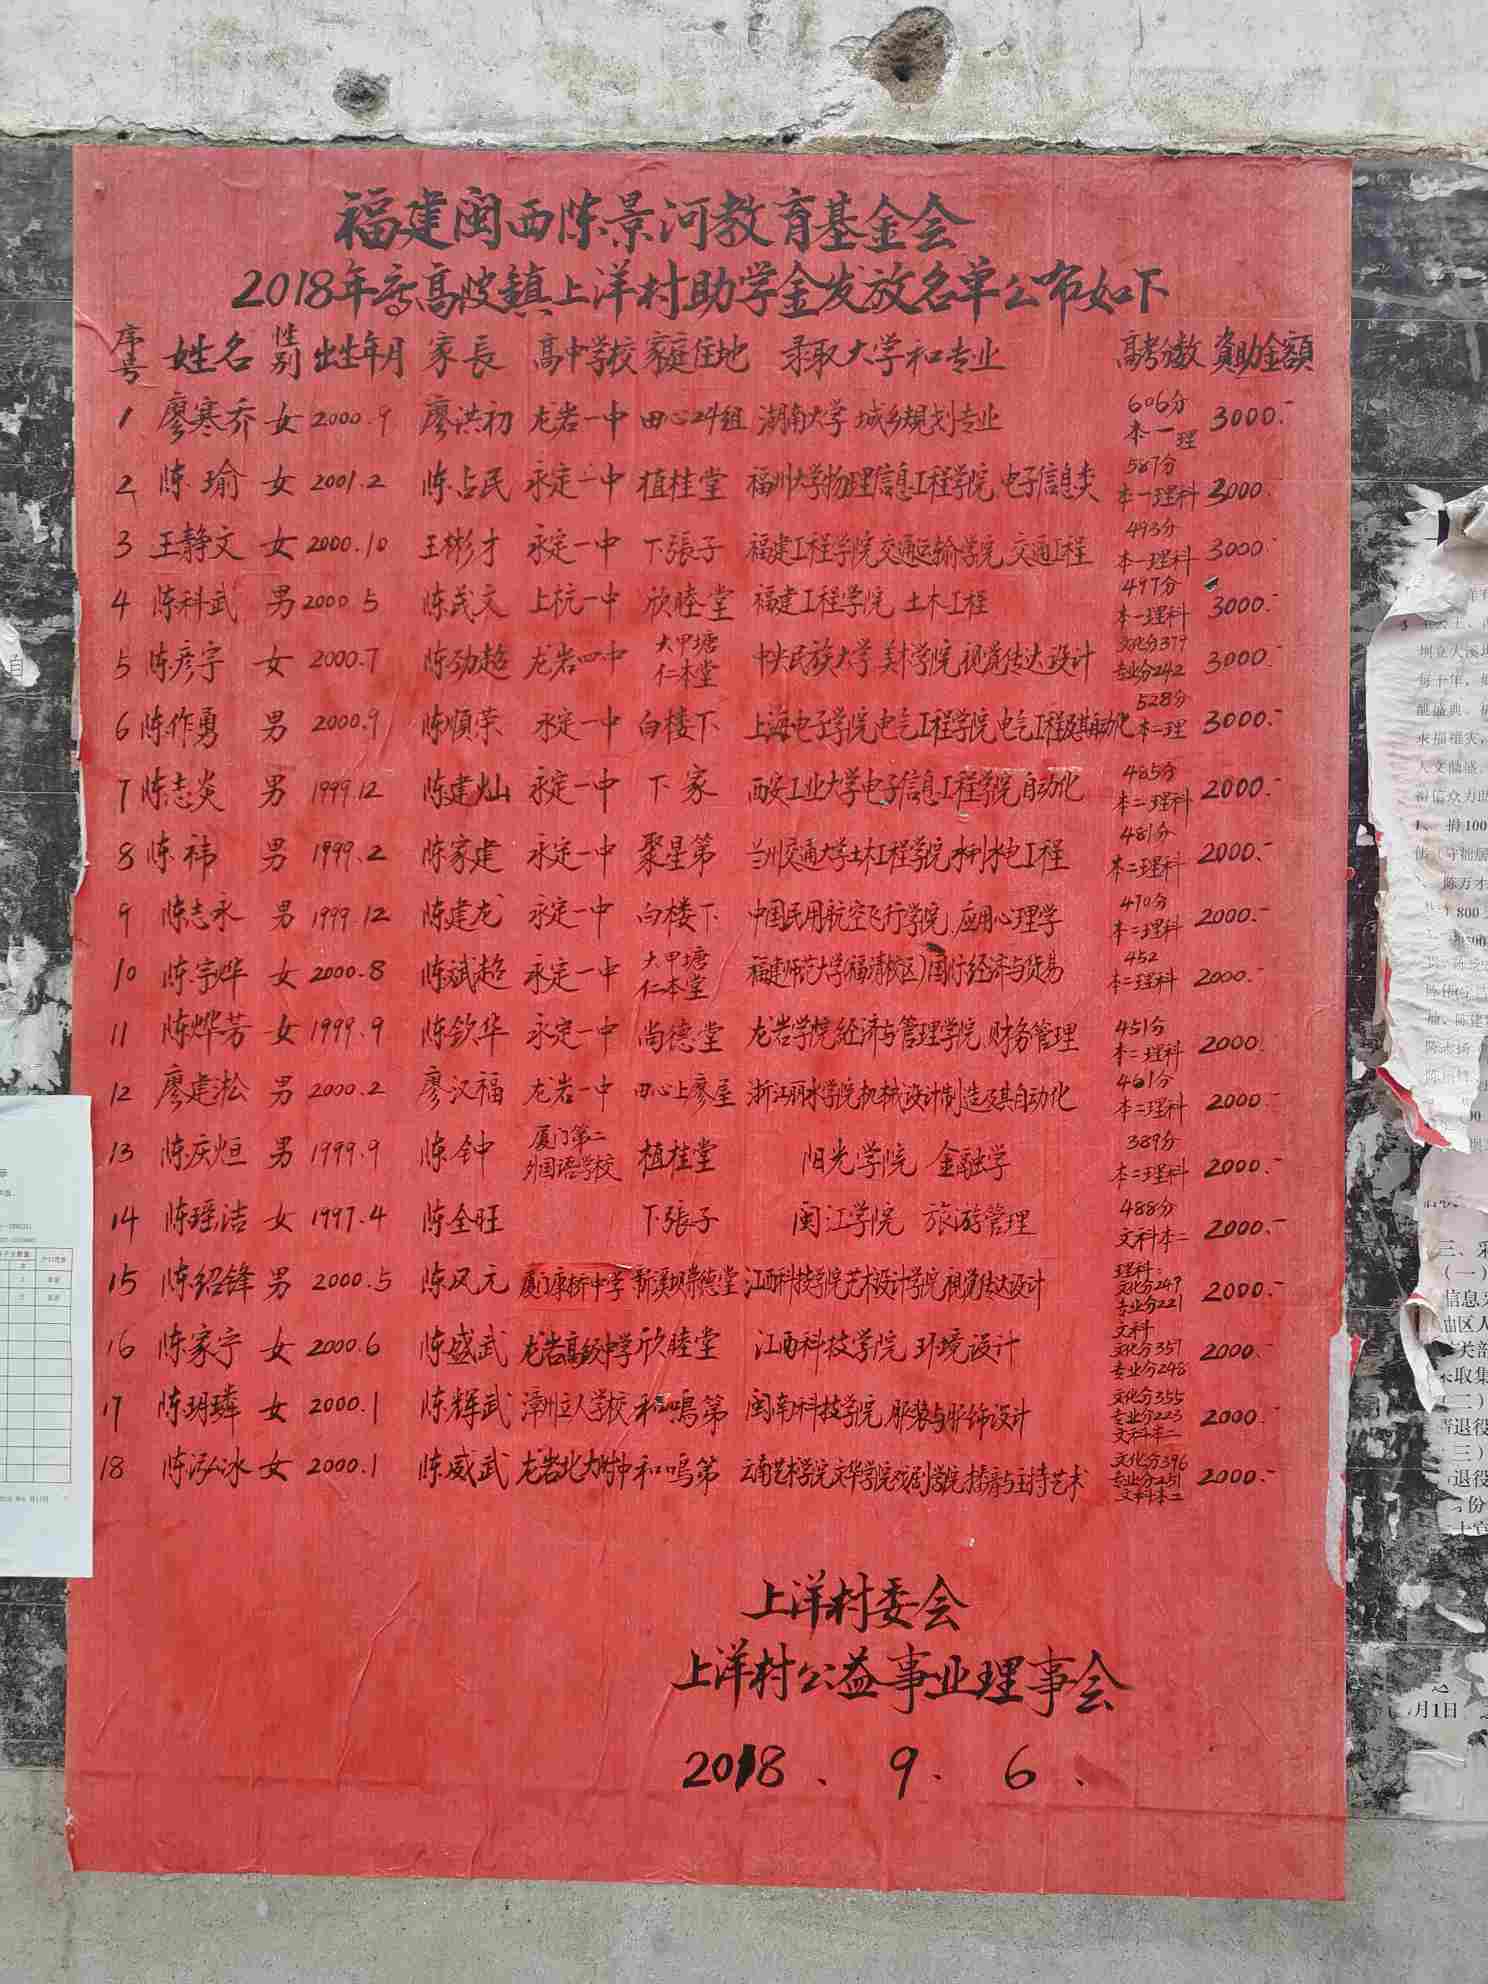 福建闽西陈景河教育基金会
2018年度高陂镇上洋村助学金发放名单公布如下
序号 姓名 性别 出生年月 家長 高中学校 家庭住地 录取大学和专业 高考分数 資助金額
1 廖寒乔 女 2000.9 廖洪初 龙岩一中 田心24组 湖南大学 城乡规划专业 606分 本一理 3000.-
2 陈瑜 女 2001.2 陈占民 永定一中 植桂堂 福州大学物理信息工程学院 电子信息类 587分 本一理科 3000.-
3 王静文 女 2000.10 王彬才 永定一中 下張子 福建工程学院交通运输学院 交通工程 493分 本一理科 3000.-
4 陈科武 男 2000.5 陈茂文 上杭一中 欣睦堂 福建工程学院 土木工程 497分 本一理科 3000.-
5 陈彦宇 女 2000.7 陈劲超 龙岩四中 大甲塘仁本堂 中央民族大学 美术学院 视觉传达设计 文化分379 专业分242 3000.-
6 陈作勇 男 2000.9 陈順荣 永定一中 白楼下 上海电子学院 电气工程学院 电气工程及其自动化 528分 本一理 3000.-
7 陈志炎 男 1999.12 陈建灿 永定一中 下家 西安工业大学电子信息工程学院 自动化 485分 本二理科 2000.-
8 陈祎 男 1999.2 陈家建 永定一中 聚星第 兰州交通大学土木工程学院 水利水电工程 481分 本二理科 2000.-
9 陈志永 男 1999.12 陈建龙 永定一中 白楼下 中国民用航空飞行学院 应用心理学 470分 本二理科 2000.-
10 陈宇烨 女 2000.8 陈斌超 永定一中 大甲塘仁本堂 福建师范大学(福清校区)国际经济与贸易 452 本二理科 2000.-
11 陈烨芳 女 1999.9 陈钦华 永定一中 尚德堂 龙岩学院 经济与管理学院 财务管理 451分 本二理科 2000.-
12 廖建淞 男 2000.2 廖汉福 龙岩一中 田心上廖屋 浙江丽水学院 机械设计制造及其自动化 461分 本二理科 2000.-
13 陈庆烜 男 1999.9 陈钟 厦门第二外国语学校 植桂堂 阳光学院 金融学 389分 本二理科 2000.-
14 陈瑶洁 女 1997.4 陈全旺 下張子 闽江学院 旅游管理 488分 文科本二 2000.-
15 陈绍锋 男 2000.5 陈凤元 厦门康桥中学 新溪坝崇德堂 江西科技学院艺术设计学院 视觉传达设计 理科: 文化分249 专业分221 2000.-
16 陈家宁 女 2000.6 陈盛武 龙岩高级中学 欣睦堂 江西科技学院 环境设计 文科 文化分351 专业分248 2000.-
17 陈玥璘 女 2000.1 陈辉武 漳州立人学校 和鳴第 闽南科技学院 服装与服饰设计 文化分355 专业分223 文科本二 2000.-
18 陈泓冰 女 2000.1 陈威武 龙岩北大附中 和鳴第 云南艺术学院文华学院戏剧学院 播音与主持艺术 文化分396 专业分251 文科本二 2000.-
上洋村委会
上洋村公益事业理事会
2018.9.6.